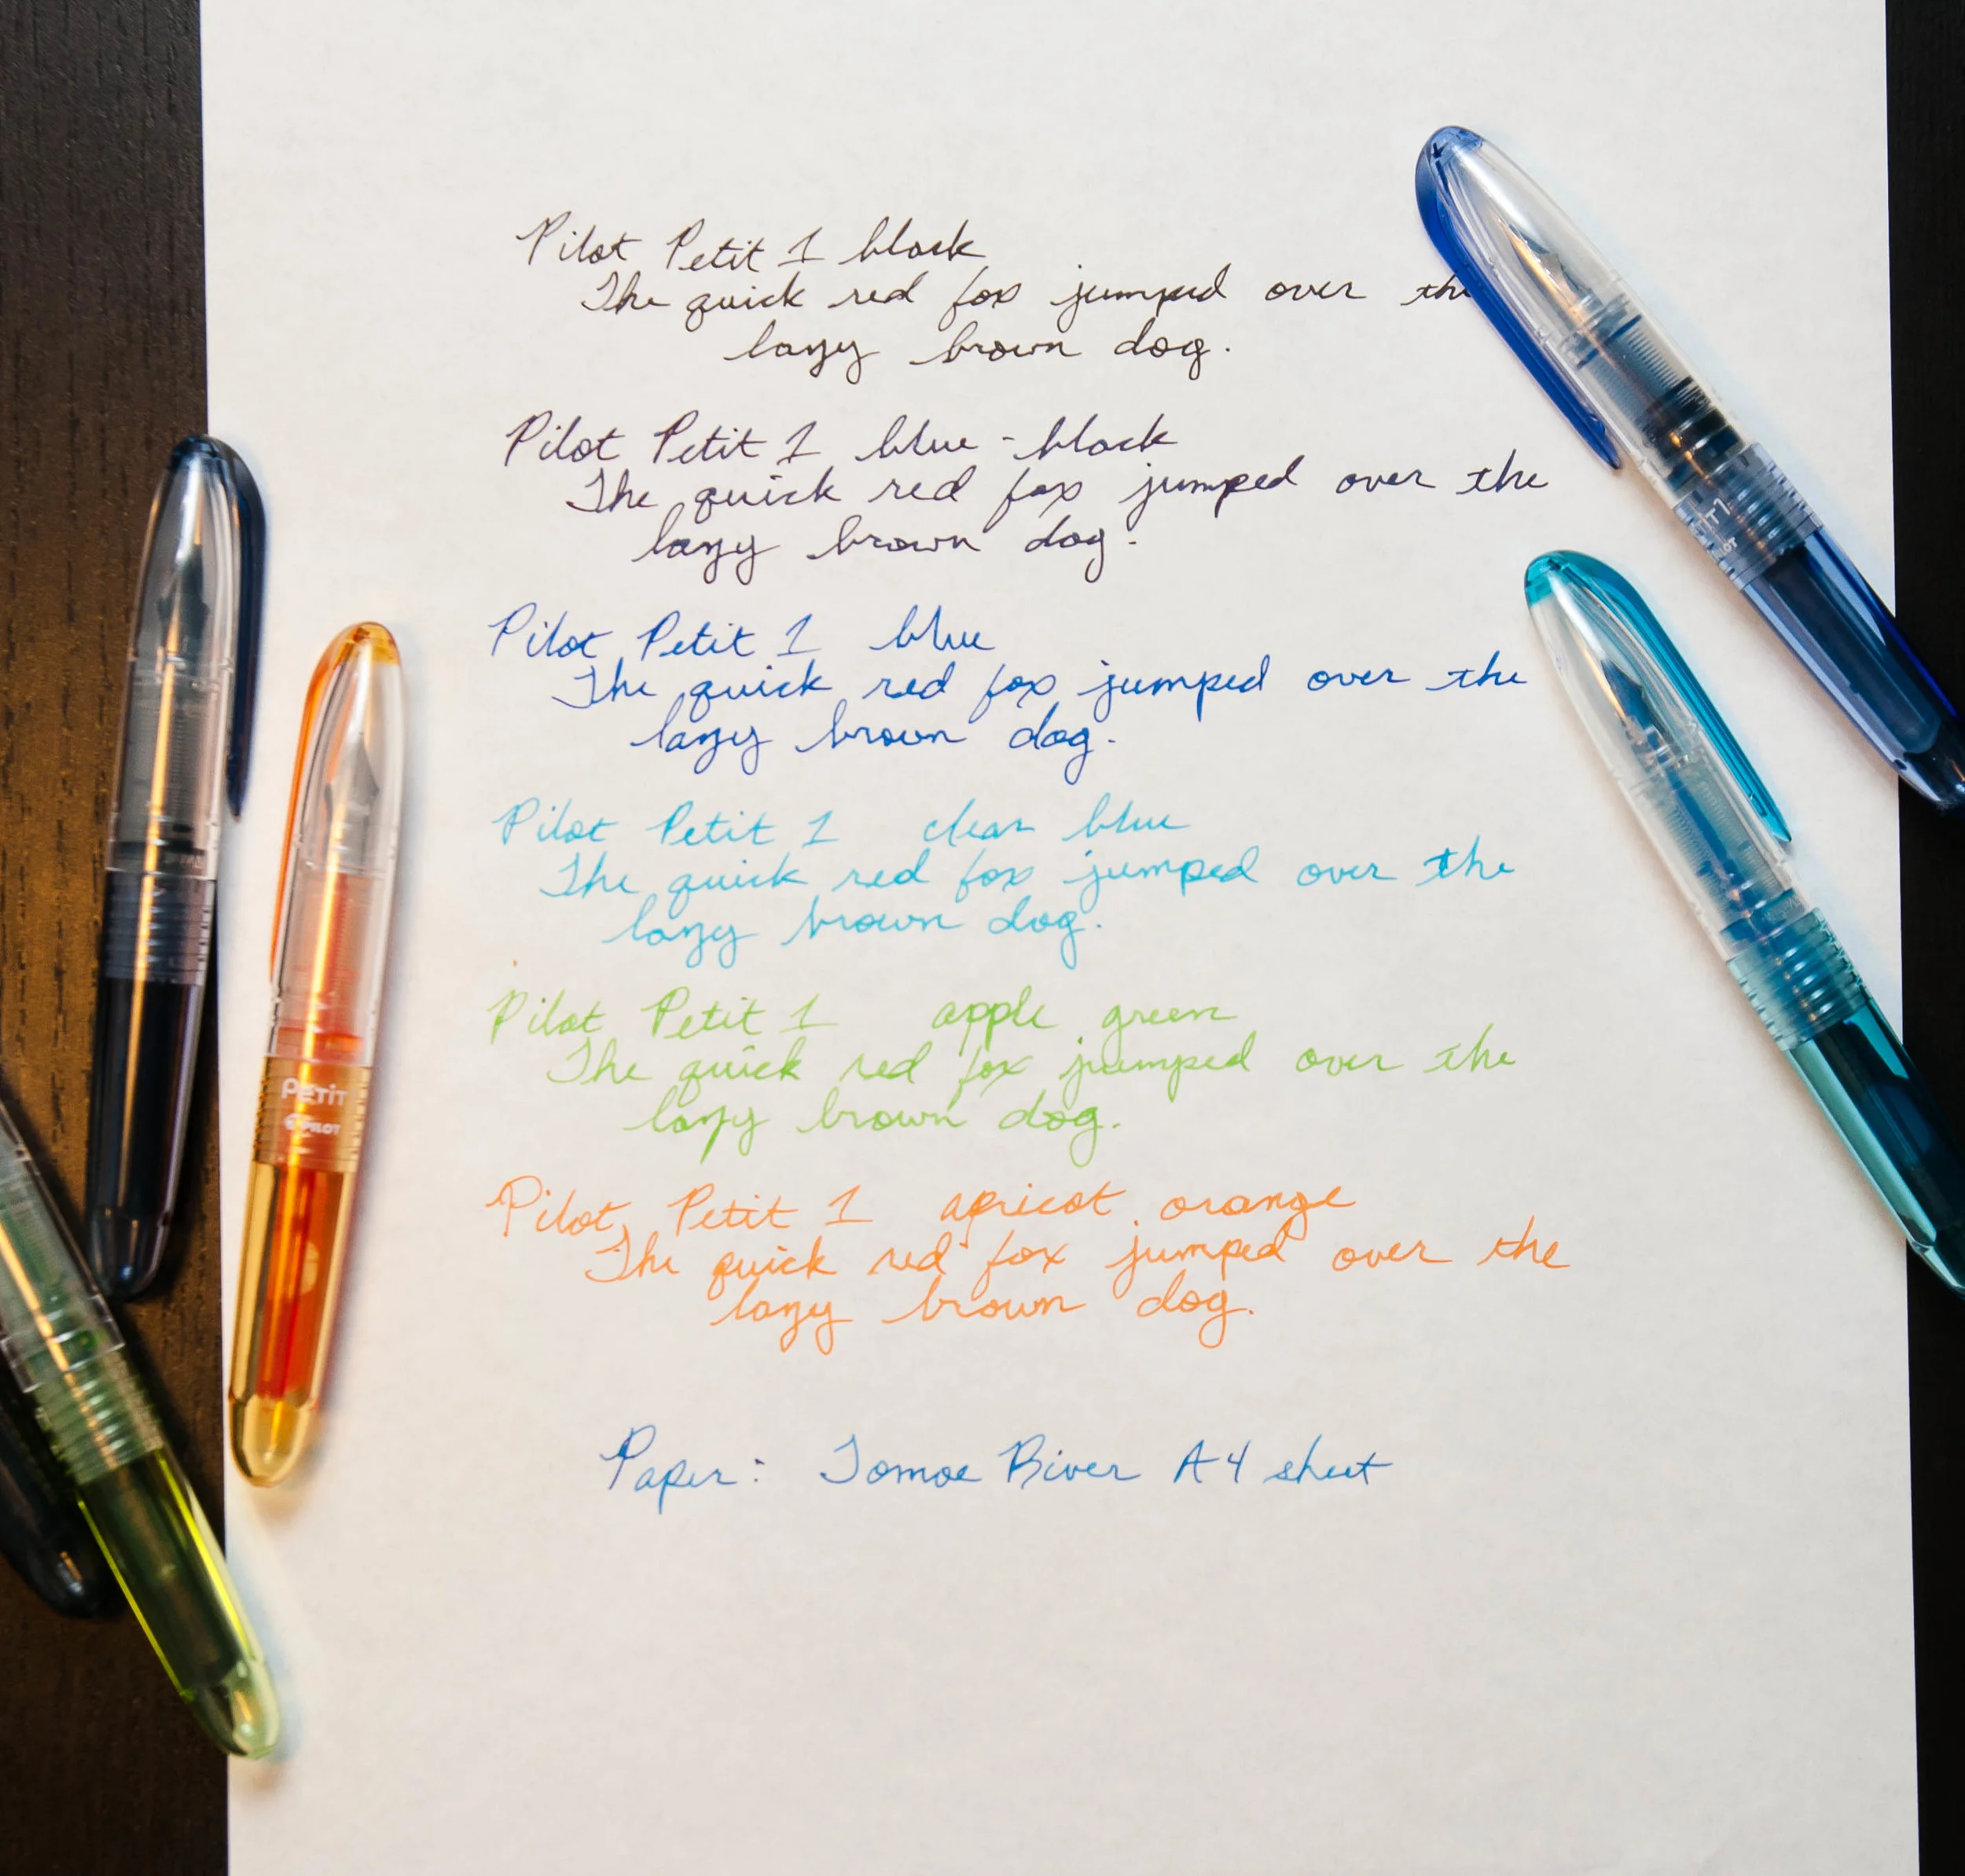 Pilot Petit 1 black
The quick red fox jumped over the
lazy brown dog.
Pilot Petit 1 blue-black
The quick red fox jumped over the
lazy brown dog.
Pilot Petit 1 blue
The quick red fox jumped over the
lazy brown dog.
Pilot Petit 1 clear blue
The quick red fox jumped over the
lazy brown dog.
Pilot Petit 1 apple green
The quick red fox jumped over the
lazy brown dog.
Pilot Petit 1 apricot orange
The quick red fox jumped over the
lazy brown dog.
Paper: Tomoe River A4 sheet
PETIT
PILOT
PILOT